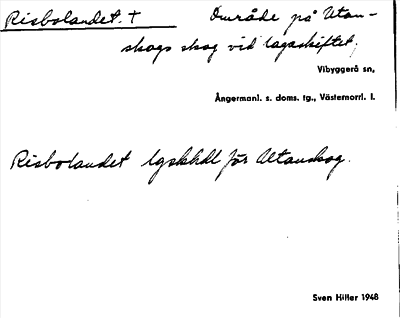 Risbolandet. + Område på Utan-
skogs skog vid lagaskiftet,
Vibyggerå sn,
Ångermanl. s. doms. tg., Västernorrl. l.
Risbolandet lgskhdl för Utanskog.
Sven Hiller 1948